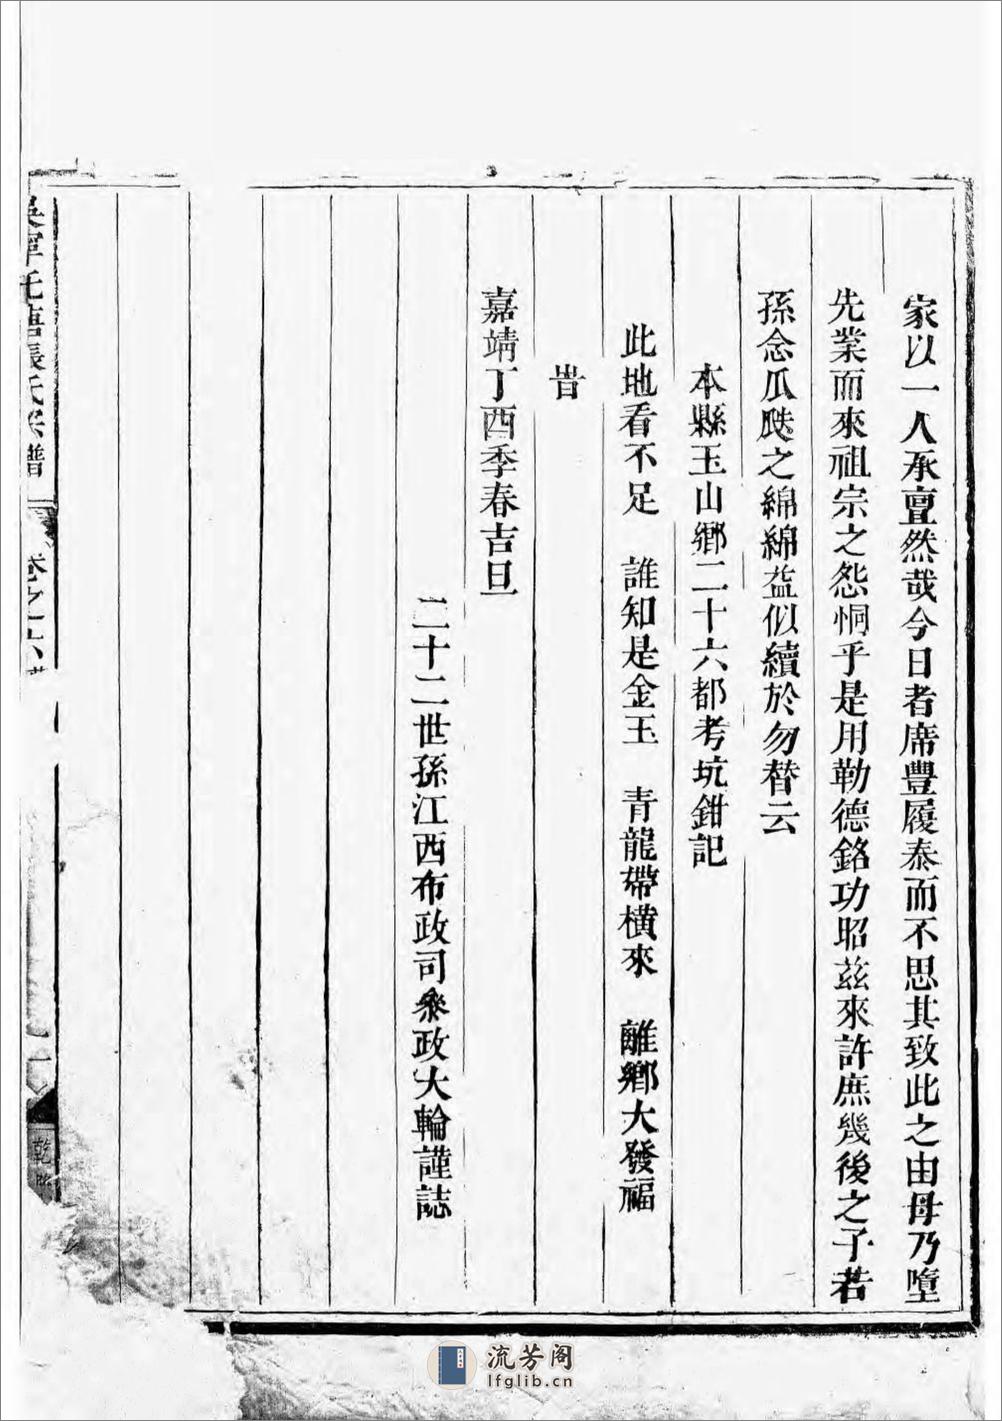 家以一人承亶然哉今日者席豐履泰而不思其致此之由毋乃墮
先業而來祖宗之怨恫乎是用勒德銘功昭兹來許庶幾後之子若
孫念瓜瓞之綿綿益似續於勿替云
本縣玉山鄉二十六都考坑鉗記
此地看不足　誰知是金玉　青龍帶橫來　離鄉大發福
旹
嘉靖丁酉季春吉旦
二十二世孫江西布政司叅政大輪謹誌
張氏宗譜
卷之六
乾
流芳阁
lfglib.cn